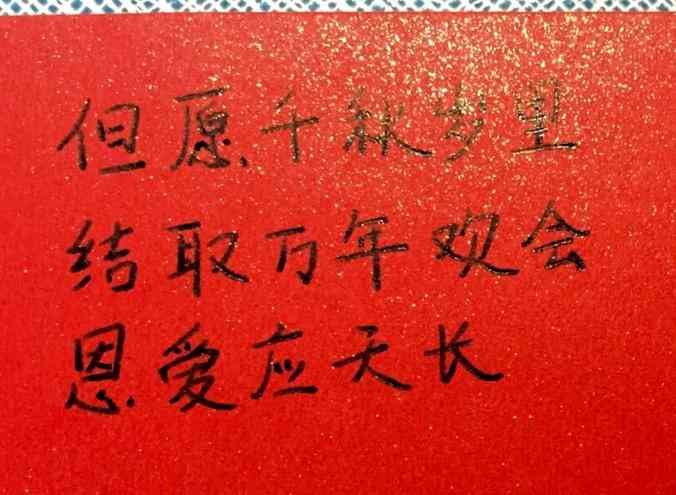 但愿千秋岁里
结取万年欢会
恩爱应天长